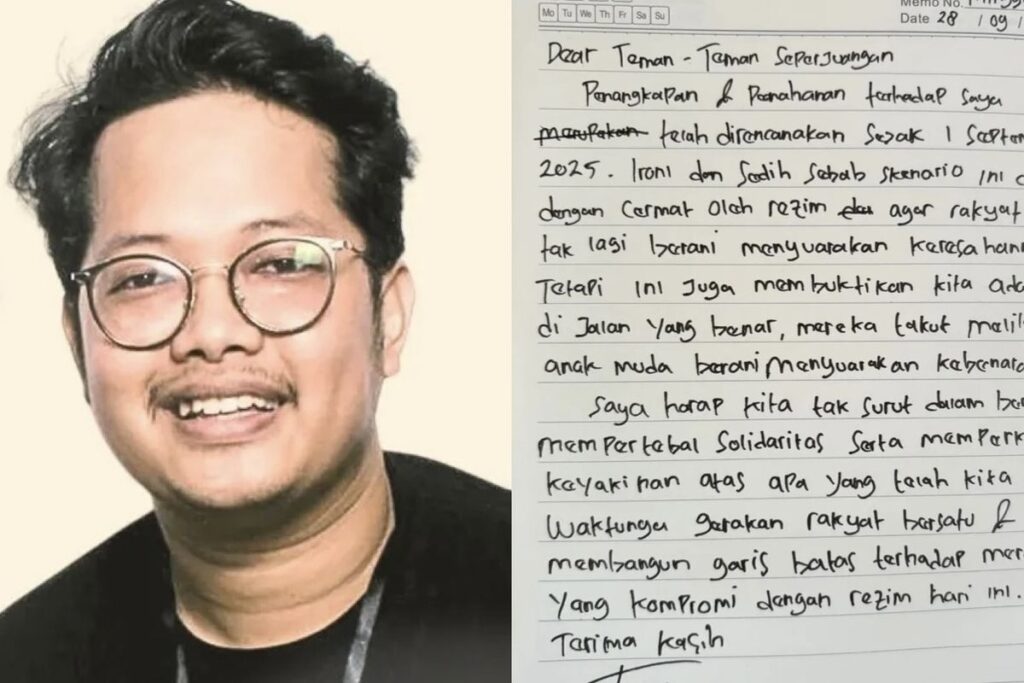 Mo Tu We Th Fr Sa Su
Memo No.
Date 28 / 09 /
Dear Teman - Teman Seperjuangan
Penangkapan & Penahanan terhadap saya
merupakan telah direncanakan Sejak 1 Septem
2025. Ironi dan Sedih Sebab Skenario ini
dengan Cermat Oleh rezim agar rakyat
tak lagi berani menyuarakan Keresahann
Tetapi ini Juga membuktikan kita ada
di Jalan Yang benar, mereka takut melih
anak muda berani menyuarakan kebenara
Saya harap kita tak Surut dalam
mempertebal Solidaritas Serta memperk
Keyakinan atas apa Yang telah kita
Waktunya gerakan rakyat bersatu &
membangun garis batas terhadap mer
Yang kompromi dengan rezim hari ini.
Terima Kasih